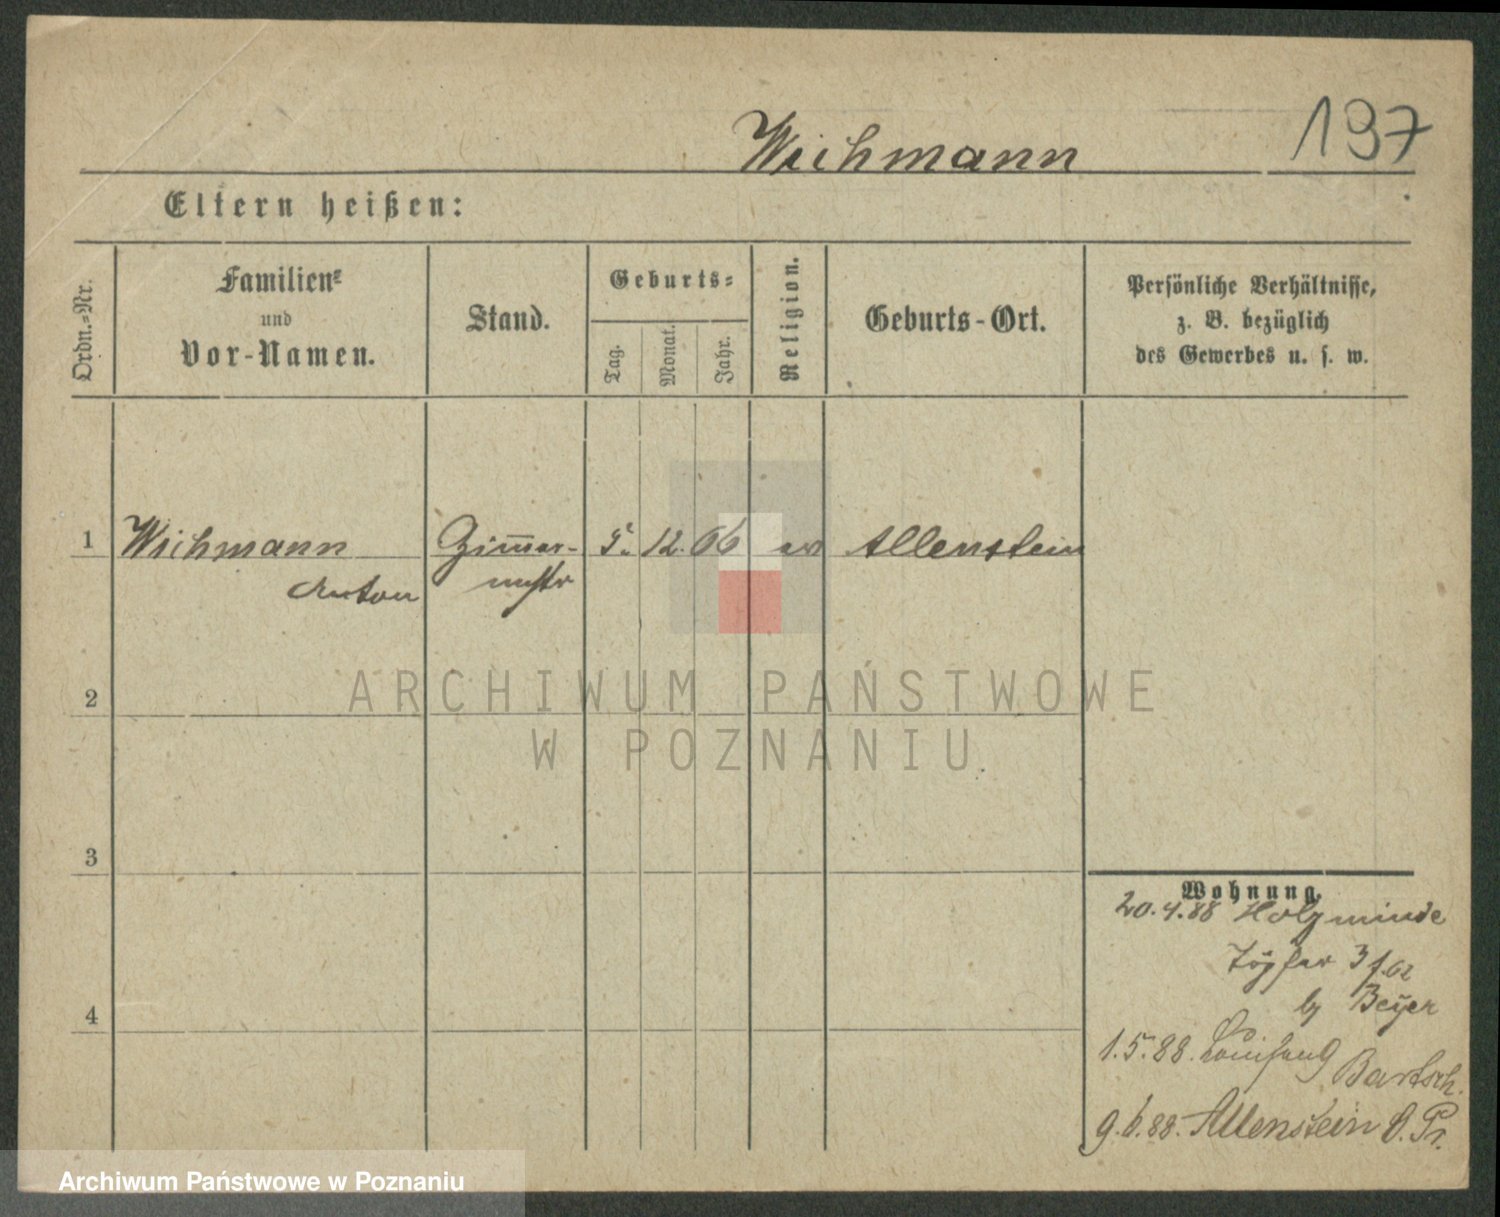 Wichmann 197
Eltern heißen:
Ordn.-Nr.
Familien-
und
Vor-Namen.
Stand.
Geburts-
Tag.
Monat.
Jahr.
Religion.
Geburts-Ort.
Persönliche Verhältnisse,
z. B. bezüglich
des Gewerbes u. s. w.
1 Wichmann Zimmer- 5. 12. 66 ev Allenstein
Anton
2
ARCHIWUM PAŃSTWOWE
W POZNANIU
3
Wohnung.
20.4.88 Holzminde
3
by Beyer
4
1.5.88. Bartsch.
9.6.88. Allenstein O. Pr.
Archiwum Państwowe w Poznaniu